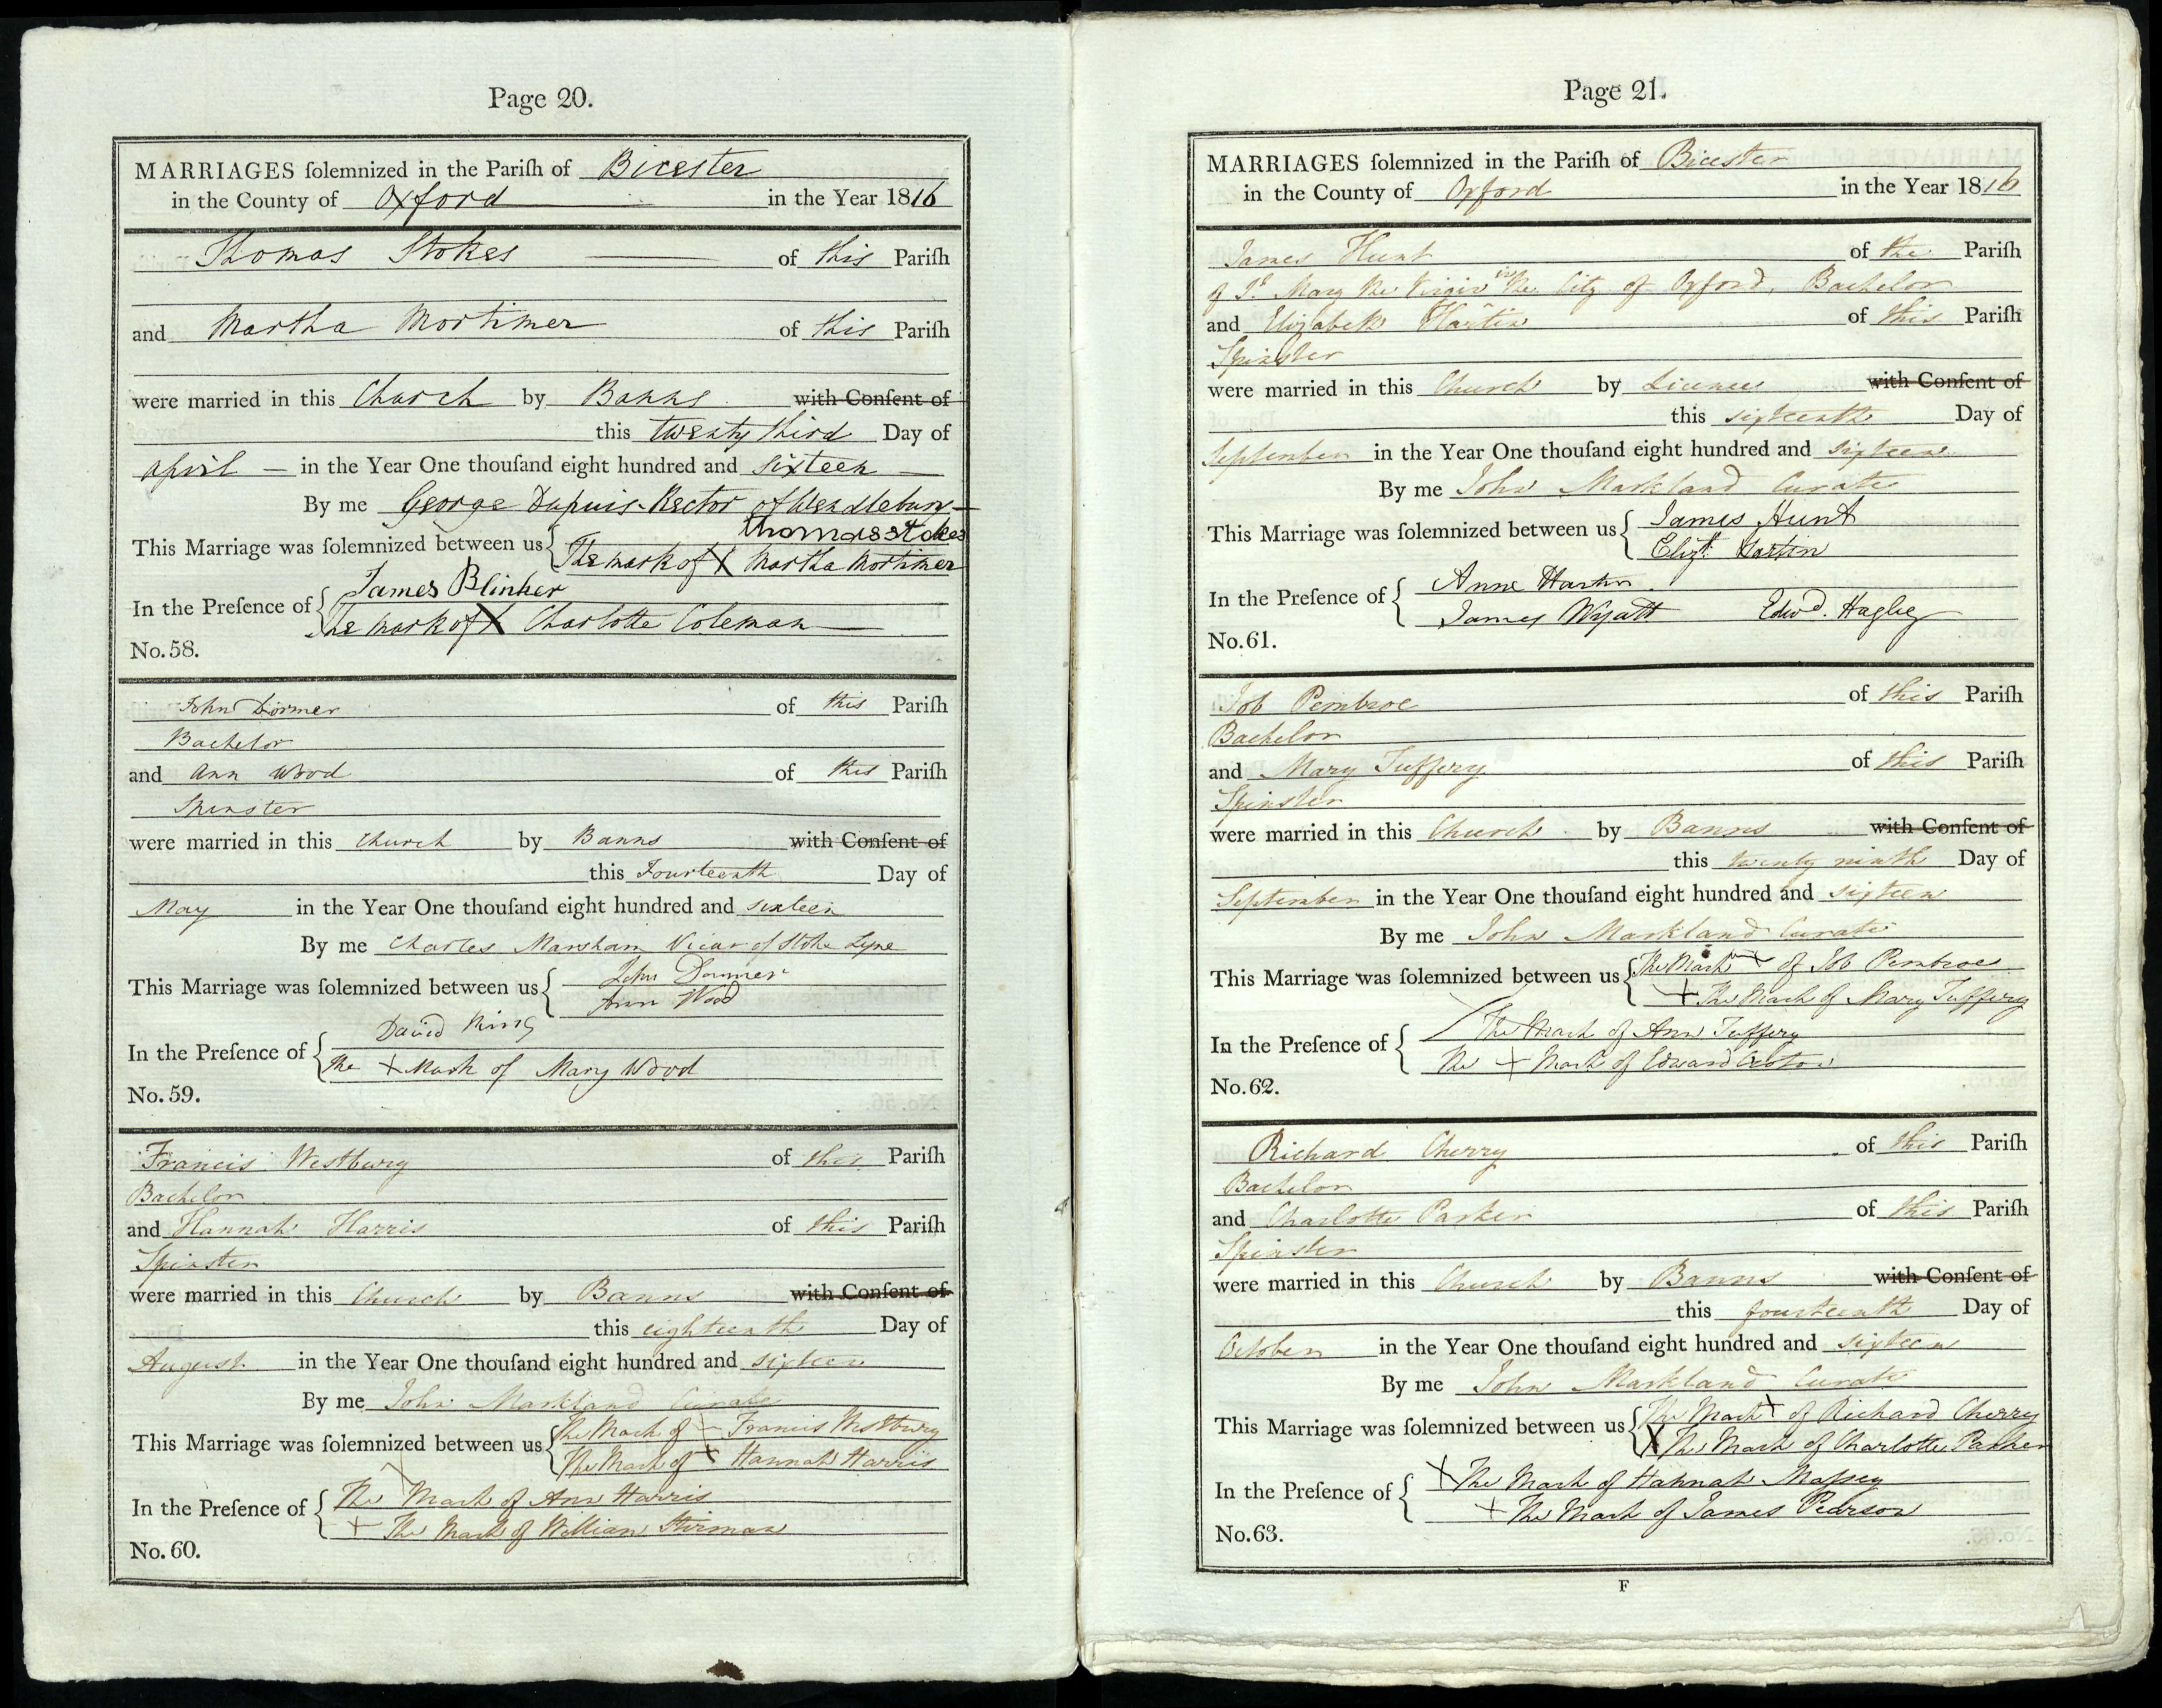 Page 20.
MARRIAGES ſolemnized in the Pariſh of Bicester
in the County of Oxford in the Year 1816
Thomas Stokes of this Pariſh
and Martha Mortimer of this Pariſh
were married in this Church by Banns with Conſent of
this twenty third Day of
april in the Year One thouſand eight hundred and sixteen
By me George Dupuis. Rector of Wendlebury
This Marriage was ſolemnized between us { thomas stokes
The mark of X Martha Mortimer
In the Preſence of { James Blinker
The mark of X Charlotte Coleman
No. 58.
John Dormer of this Pariſh
Bachelor
and Ann Wood of this Pariſh
Spinster
were married in this Church by Banns with Conſent of
this Fourteenth Day of
May in the Year One thouſand eight hundred and sixteen
By me Charles Marsham Vicar of Stoke Lyne
This Marriage was ſolemnized between us { John Dormer
Ann Wood
In the Preſence of { David King
The + Mark of Mary Wood
No. 59.
Francis Westbury of this Pariſh
Bachelor
and Hannah Harris of this Pariſh
Spinster
were married in this Church by Banns with Conſent of
this eighteenth Day of
August in the Year One thouſand eight hundred and sixteen
By me John Markland Curate
This Marriage was ſolemnized between us { The Mark of + Francis Westbury
The Mark of + Hannah Harris
In the Preſence of { The Mark of Ann Harris
+ The Mark of William Stirman
No. 60.
Page 21.
MARRIAGES ſolemnized in the Pariſh of Bicester
in the County of Oxford in the Year 1816
James Hunt of the Pariſh
of St. Mary the Virgin in the City of Oxford, Bachelor
and Elizabeth Hartin of this Pariſh
Spinster
were married in this Church by Licence with Conſent of
this sixteenth Day of
September in the Year One thouſand eight hundred and sixteen
By me John Markland Curate
This Marriage was ſolemnized between us { James Hunt
Elizth. Hartin
In the Preſence of { Anne Hartin
James Wyatt Edwd. Hagley
No. 61.
Job Pembroe of this Pariſh
Bachelor
and Mary Tuffery of this Pariſh
Spinster
were married in this Church by Banns with Conſent of
this twenty ninth Day of
September in the Year One thouſand eight hundred and sixteen
By me John Markland Curate
This Marriage was ſolemnized between us { The Mark + of Job Pembroe
+ The Mark of Mary Tuffery
In the Preſence of { The Mark of Ann Tuffery
The + Mark of Edward
No. 62.
Richard Cherry of this Pariſh
Bachelor
and Charlotte Parker of this Pariſh
Spinster
were married in this Church by Banns with Conſent of
this fourteenth Day of
October in the Year One thouſand eight hundred and sixteen
By me John Markland Curate
This Marriage was ſolemnized between us { The Mark + of Richard Cherry
X The Mark of Charlotte Parker
In the Preſence of { + The Mark of Hannah Maſsey
+ The Mark of James Pearson
No. 63.
F